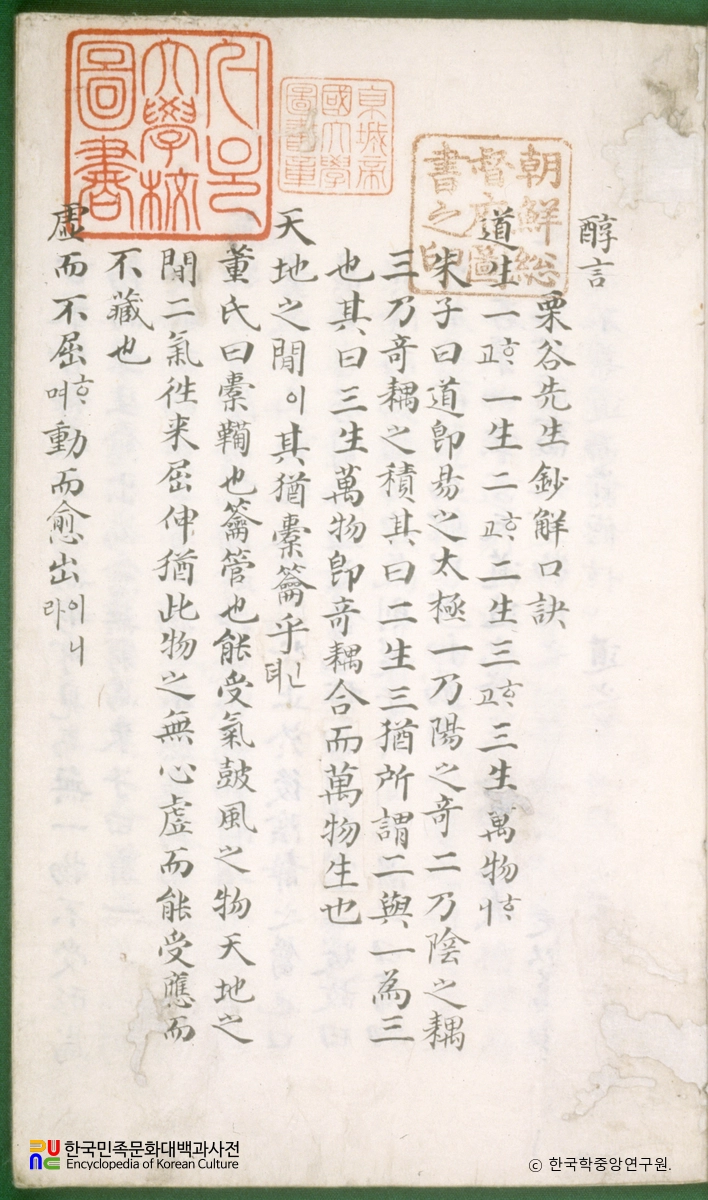 醇言
栗谷先生鈔解口訣
道生一ᄒᆞ고一生二ᄒᆞ고二生三ᄒᆞ고三生萬物ᄒᆞ니
朱子曰道卽易之太極一乃陽之奇二乃陰之耦
三乃奇耦之積其曰二生三猶所謂二與一為三
也其曰三生萬物卽奇耦合而萬物生也
天地之間이其猶橐籥乎ᅟᅵᆫ뎌
董氏曰橐鞴也籥管也能受氣鼓風之物天地之
間二氣徃来屈伸猶此物之無心虛而能受應而
不藏也
虛而不屈ᄒᆞ며動而愈出이니라
朝鮮総督府圖書之印
京城帝國大學圖書章
서울大學校圖書
한국민족문화대백과사전
Encyclopedia of Korean Culture
© 한국학중앙연구원.